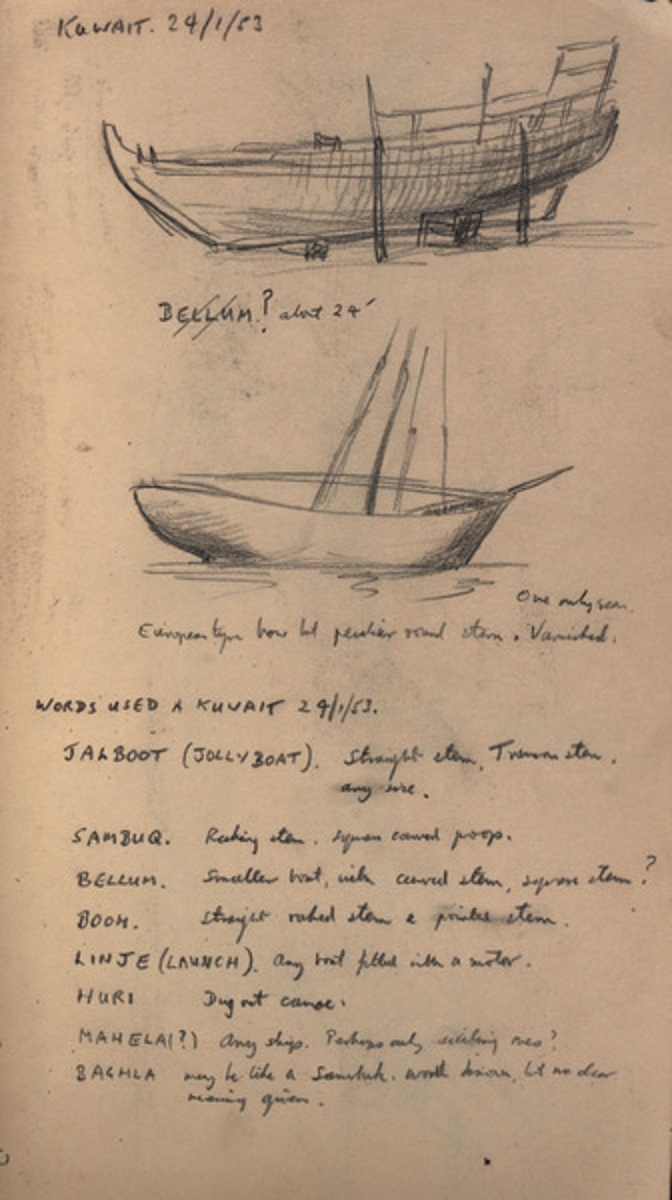 KUWAIT. 24/1/53
BELLUM? about 24'
One only seen.
European type bow but peculiar round stern. Varnished.
WORDS USED A KUWAIT 24/1/53.
JALBOOT (JOLLYBOAT). Straight stem, Transom stern,
any size.
SAMBUQ. Raking stem. square carved poop.
BELLUM. Smaller boat, with curved stem, square stern?
BOOM. Straight raked stem & pointed stern.
LINJE (LAUNCH). Any boat fitted with a motor.
HURI Dug out canoe.
MAHELA(?) Any ship. Perhaps only sailing ones?
BAGHLA may be like a Sambuk. word known, but no clear
meaning given.